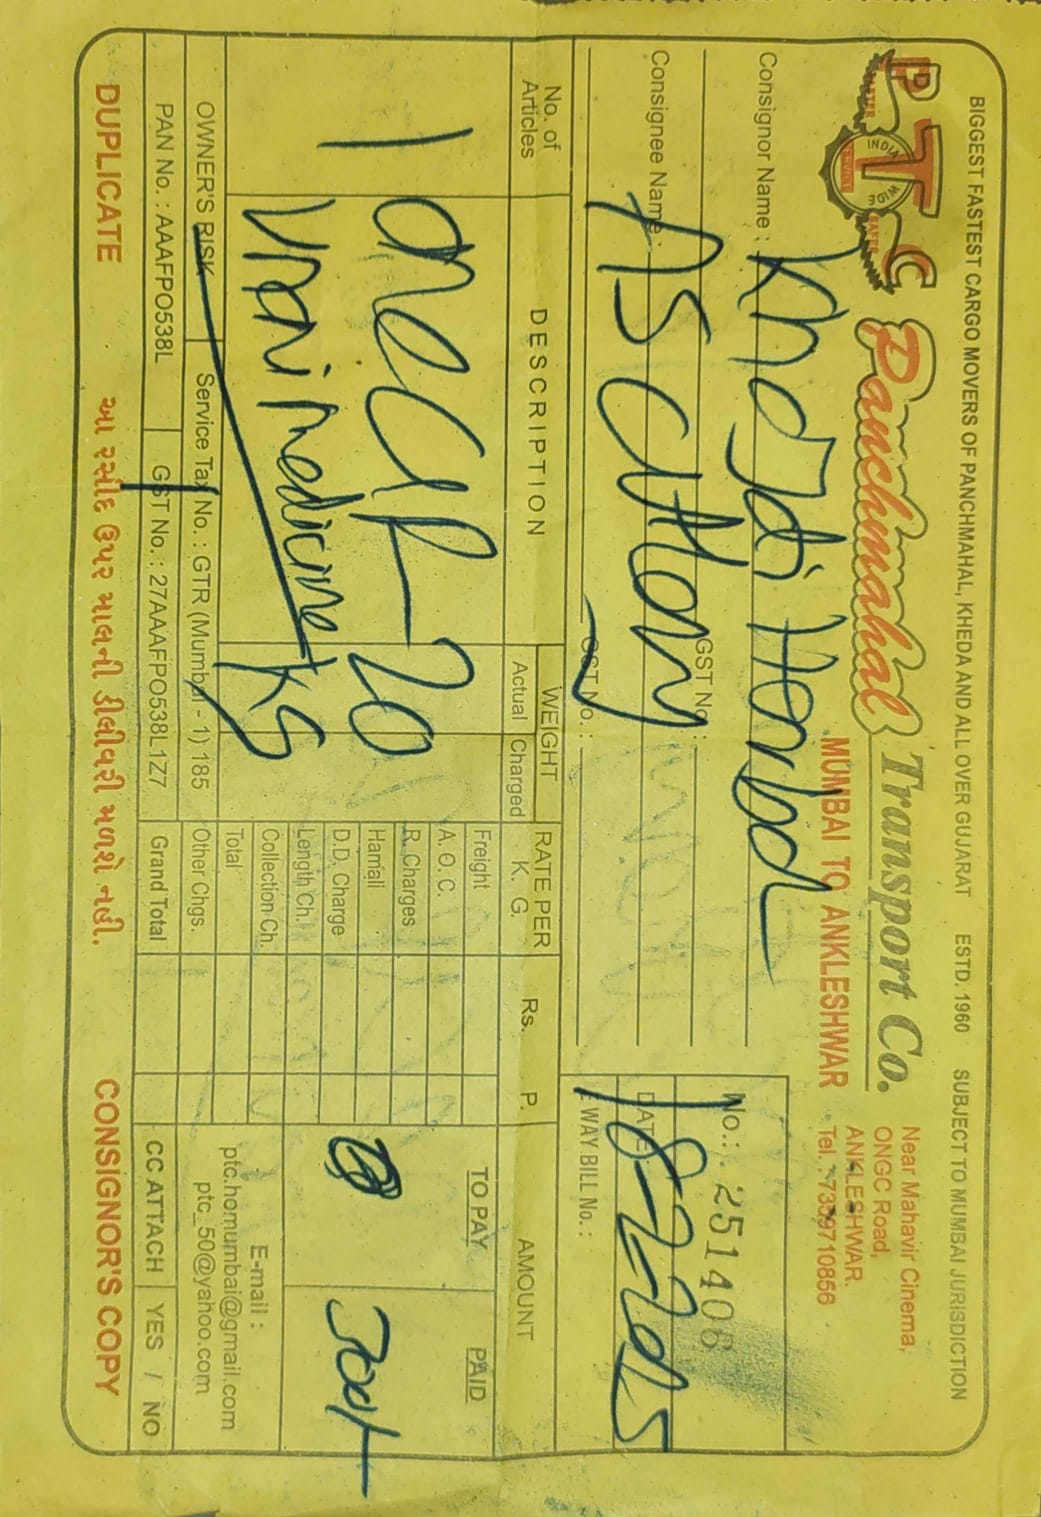 BIGGEST FASTEST CARGO MOVERS OF PANCHMAHAL, KHEDA AND ALL OVER GUJARAT ESTD. 1960 SUBJECT TO MUMBAI JURISDICTION
PTC
FASTER SAFER
INDIA WIDE
SERVICE
Panchmahal Transport Co.
MUMBAI TO ANKLESHWAR
Near Mahavir Cinema,
ONGC Road,
ANKLESHWAR.
Tel. : 7339710856
Consignor Name :
GST No. :
Consignee Name :
AS
GST No. :
No. : 251406
DATE 18-7-2025
E-WAY BILL No. :
No. of Articles
DESCRIPTION
WEIGHT
Actual Charged
RATE PER K. G.
Rs. P.
AMOUNT
TO PAY PAID
1
one
20
medicine
KS
Freight
A. O. C.
R. Charges
Hamali
D.D. Charge
Length Ch.
Collection Ch.
Total
Other Chgs.
Grand Total
300/-
OWNER'S RISK
Service Tax No. : GTR (Mumbai - 1) 185
PAN No. : AAAFPO538L
GST No. : 27AAAFPO538L1Z7
E-mail :
ptc.homumbai@gmail.com
ptc_50@yahoo.com
CC ATTACH YES / NO
DUPLICATE
આ રસીદ ઉપર માલની ડીલીવરી મળશે નહી.
CONSIGNOR'S COPY